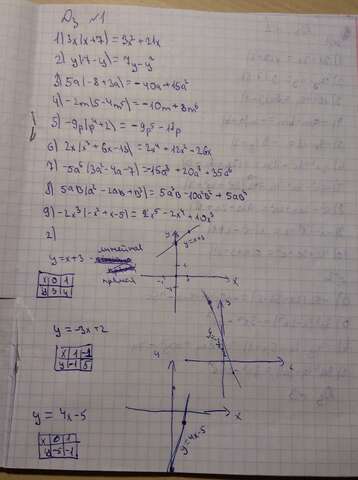 Дз №1
1) 3x(x+7)=3x²+21x
2) y(7-y)=7y-y²
3) 5a(-8+3a)=-40a+15a²
4) -2m(5-4m⁵)=-10m+8m⁶
5) -9p(p⁴+2)=-9p⁵-18p
6) 2x(x³+6x-13)=2x⁴+12x²-26x
7) -5a²(3a²-4a-7)=-15a⁴+20a³+35a²
8) 5ab(a²-2ab+b²)=5a³b-10a²b²+5ab³
9) -2x³(-x²+x-5)=2x⁵-2x⁴+10x³
2)
y=x+3 - линейная
прямая
x 0 1
y 3 4
y
y=x+3
x
y = -3x+2
x 1 -1
y -1 5
y
x
y = 4x-5
x 0 1
y -5 -1
y
x
y=4x-5